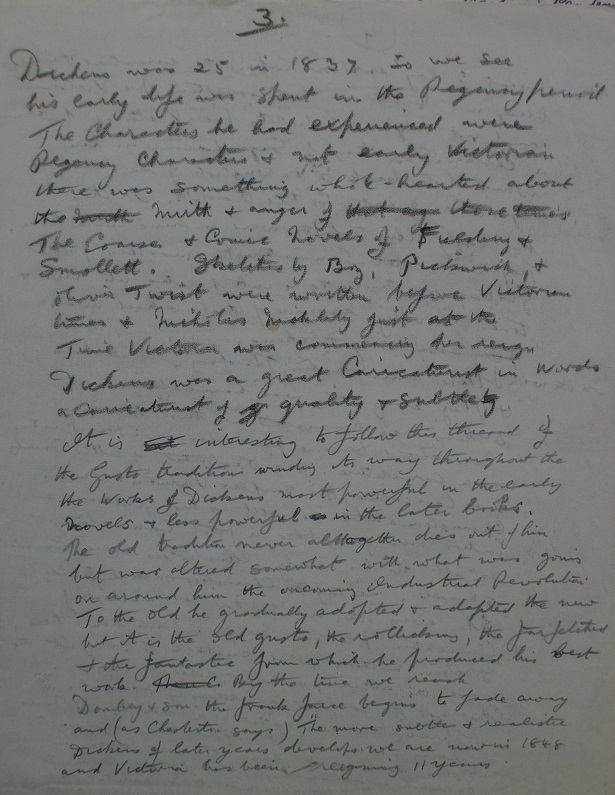 3.
Dickens was 25 in 1837. So we see
his early life was spent in the Regency period
The Characters he had experienced were
Regency Characters & not early Victorian
there was something whole-hearted about
the mirth mirth & anger of those times
The Coarse & Comic Novels of Fielding &
Smollett. Sketches by Boz, Pickwick, &
Oliver Twist were written before Victorian
times & Nicholas Nickleby just at the
Time Victoria was commencing her reign
Dickens was a great Caricaturist in words
a Caricaturist of quality & subtlety
It is interesting to follow this thread of
the Gusto tradition winding its way throughout the
the Works of Dickens most powerful in the early
novels & less powerful in the later books.
The old tradition never altogether dies out of him
but was altered somewhat with what was going
on around him the oncoming Industrial Revolution
To the old he gradually adopted & adapted the new
but it is the old gusto, the rollicking, the farfetched
& the fantastic from which he produced his best
work. By the time we reach
Dombey & son the frank farce begins to fade away
and (as Chesterton says) The more subtle & realistic
Dickens of later years develops. we are now in 1848
and Victoria has been reigning 11 years